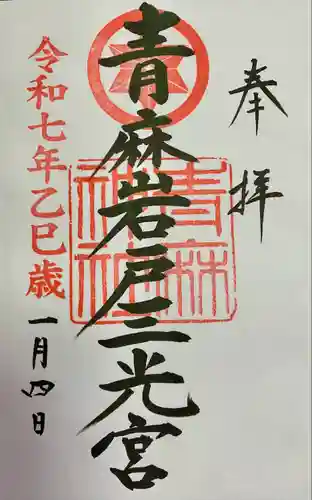 奉拝
青麻岩戸三光宮
青麻神社
令和七年乙巳歳
一月四日